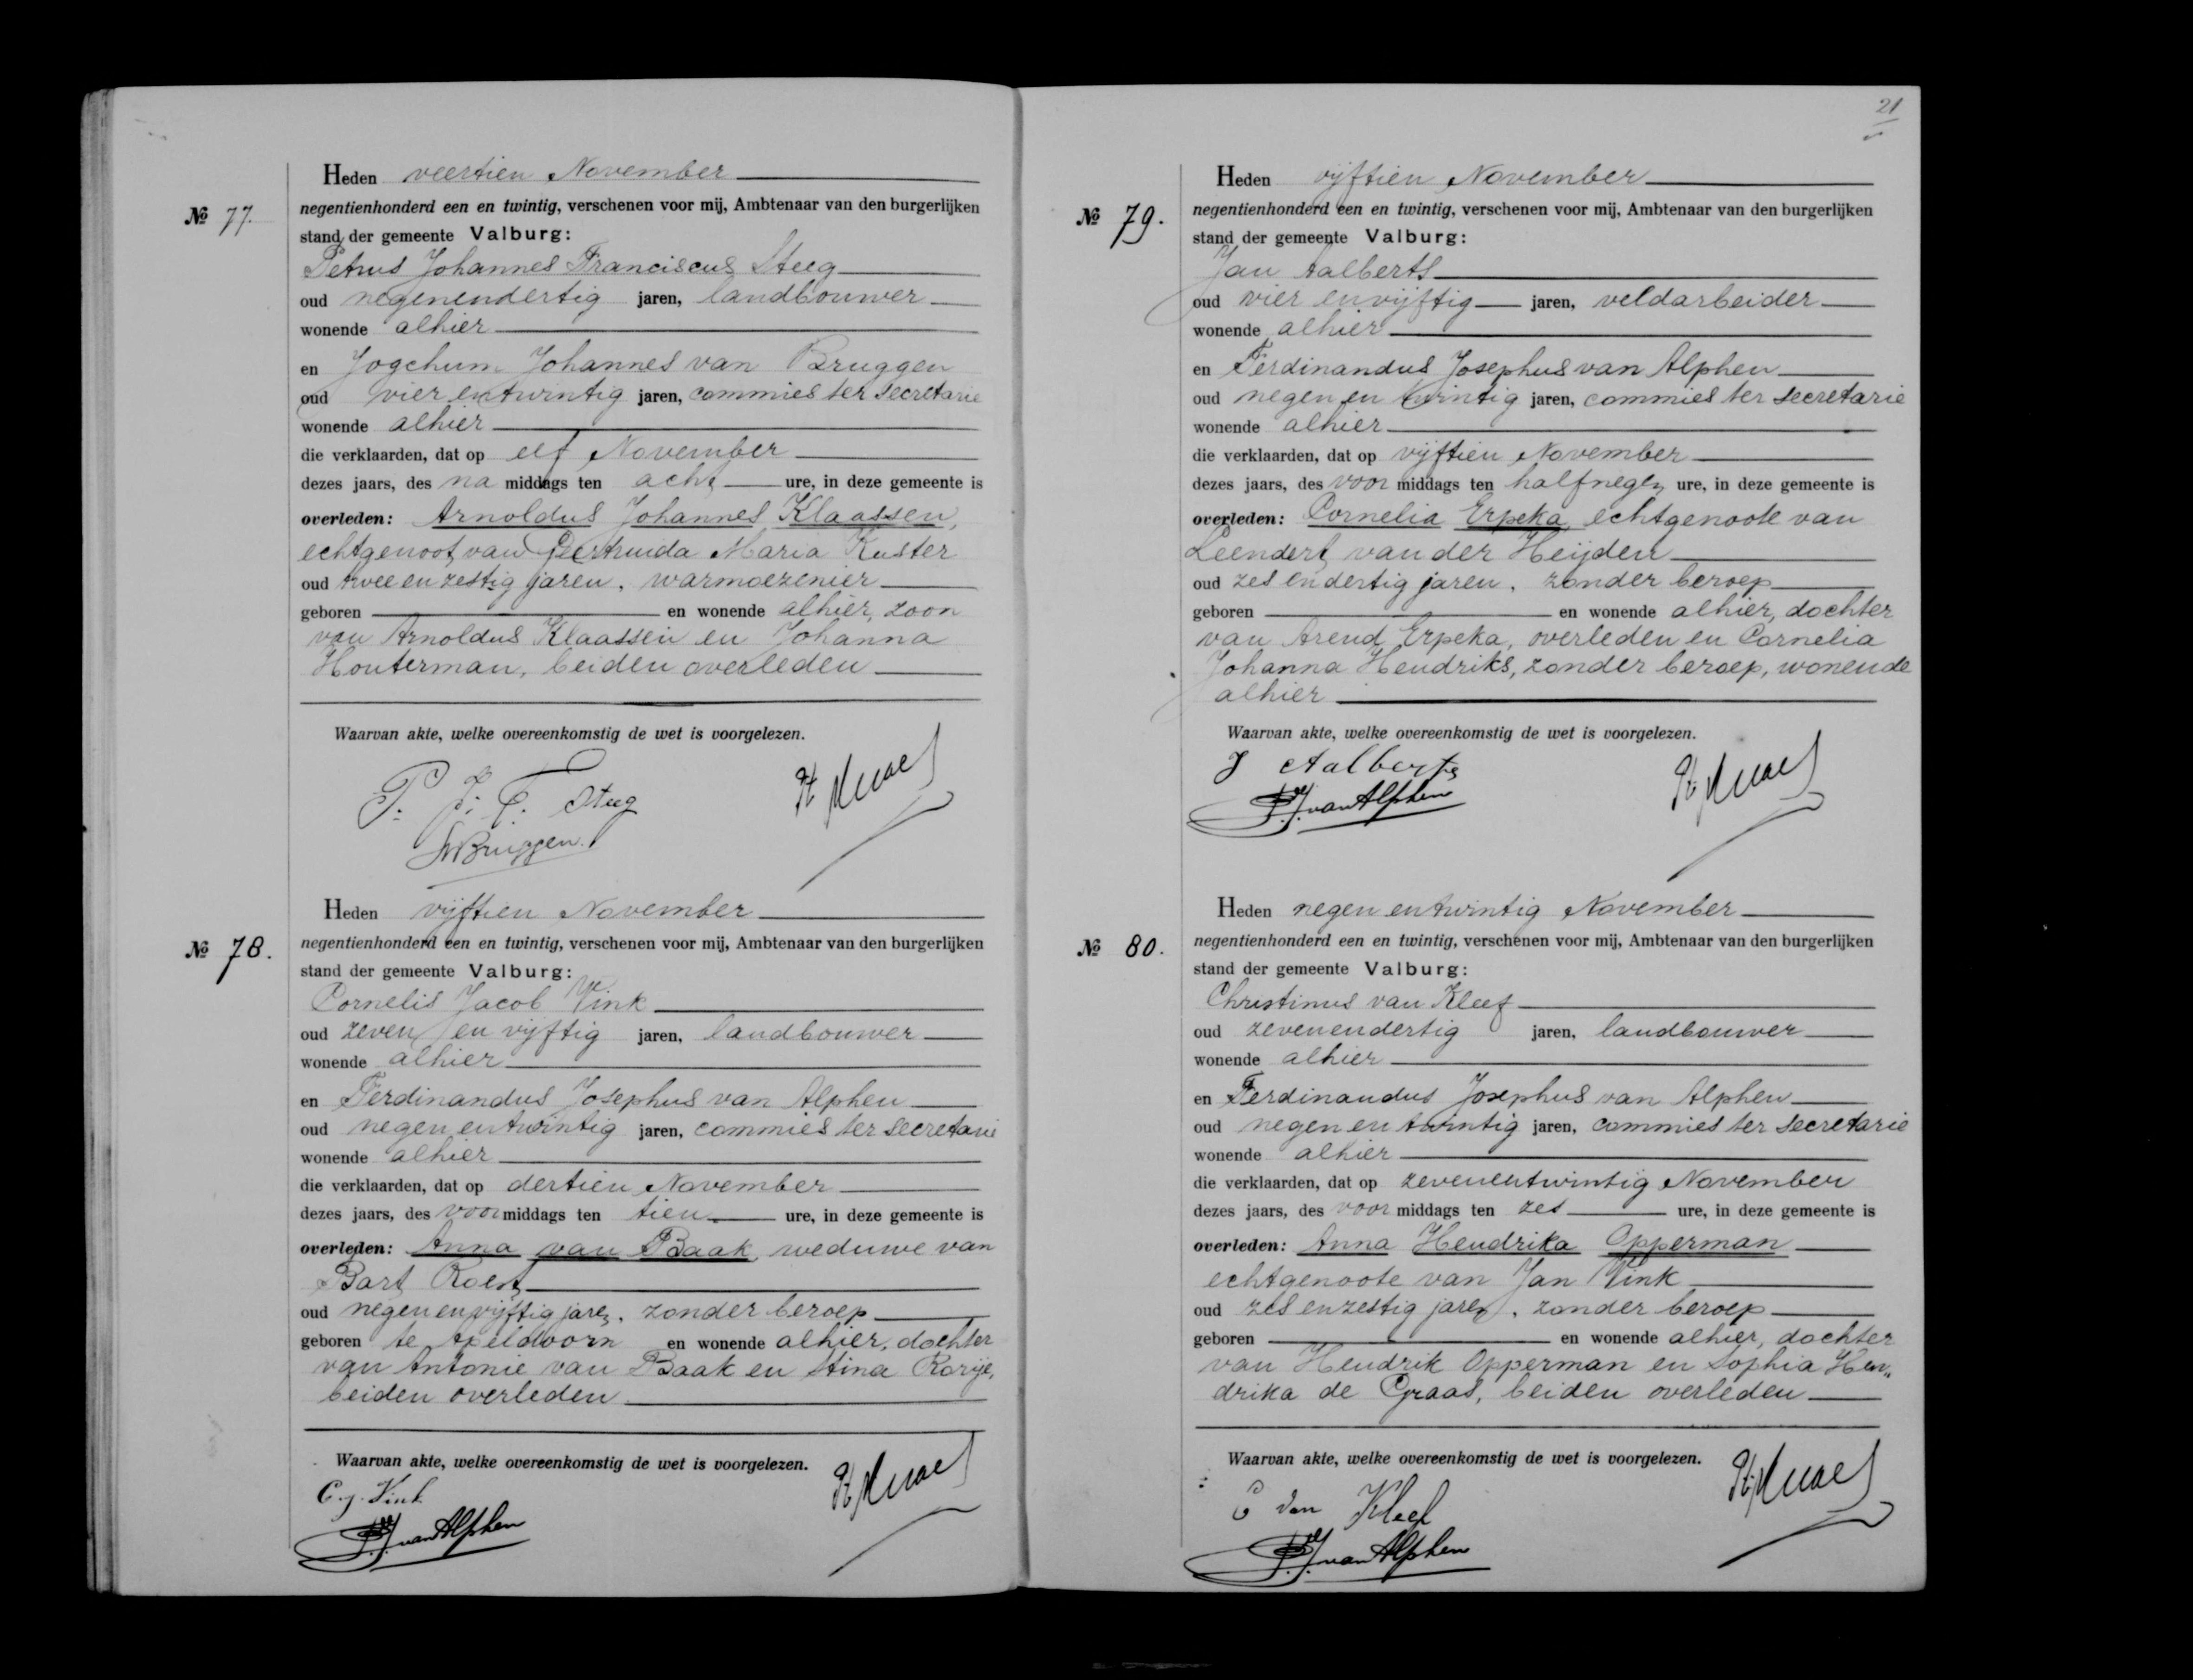 Heden veertien November
No 77.
negentienhonderd een en twintig, verschenen voor mij, Ambtenaar van den burgerlijken
stand der gemeente Valburg:
Petrus Johannes Franciscus Steeg
oud negenendertig jaren, landbouwer
wonende alhier
en Jogchum Johannes van Bruggen
oud vier en twintig jaren, commies ter secretarie
wonende alhier
die verklaarden, dat op elf November
dezes jaars, des na middags ten acht ure, in deze gemeente is
overleden: Arnoldus Johannes Klaassen,
echtgenoot van Geertruida Maria Kuster
oud twee en zestig jaren, warmoezenier
geboren en wonende alhier, zoon
van Arnoldus Klaassen en Johanna
Houterman, beiden overleden
Waarvan akte, welke overeenkomstig de wet is voorgelezen.
P. J. F. Steeg
Bruggen.
Heden vijftien November
No 78.
negentienhonderd een en twintig, verschenen voor mij, Ambtenaar van den burgerlijken
stand der gemeente Valburg:
Cornelis Jacob Vink
oud zeven en vijftig jaren, landbouwer
wonende alhier
en Ferdinandus Josephus van Alphen
oud negen en twintig jaren, commies ter secretarie
wonende alhier
die verklaarden, dat op dertien November
dezes jaars, des voor middags ten tien ure, in deze gemeente is
overleden: Anna van Baak, weduwe van
Bart Roest
oud negen en vijftig jaren, zonder beroep
geboren te Apeldoorn en wonende alhier, dochter
van Antonie van Baak en Stina Rorije,
beiden overleden
Waarvan akte, welke overeenkomstig de wet is voorgelezen.
C. J. Vink
F. J. van Alphen
21
Heden vijftien November
No 79.
negentienhonderd een en twintig, verschenen voor mij, Ambtenaar van den burgerlijken
stand der gemeente Valburg:
Jan Aalberts
oud vier en vijftig jaren, veldarbeider
wonende alhier
en Ferdinandus Josephus van Alphen
oud negen en twintig jaren, commies ter secretarie
wonende alhier
die verklaarden, dat op vijftien November
dezes jaars, des voor middags ten half negen ure, in deze gemeente is
overleden: Cornelia Erpeka, echtgenoote van
Leendert van der Heijden
oud zes en dertig jaren, zonder beroep
geboren en wonende alhier, dochter
van Arend Erpeka, overleden en Cornelia
Johanna Hendriks, zonder beroep, wonende
alhier
Waarvan akte, welke overeenkomstig de wet is voorgelezen.
J Aalberts
F. J. van Alphen
Heden negen en twintig November
No 80.
negentienhonderd een en twintig, verschenen voor mij, Ambtenaar van den burgerlijken
stand der gemeente Valburg:
Christinus van Kleef
oud zevenendertig jaren, landbouwer
wonende alhier
en Ferdinandus Josephus van Alphen
oud negen en twintig jaren, commies ter secretarie
wonende alhier
die verklaarden, dat op zevenentwintig November
dezes jaars, des voor middags ten zes ure, in deze gemeente is
overleden: Anna Hendrika Opperman
echtgenoote van Jan Vink
oud zes en zestig jaren, zonder beroep
geboren en wonende alhier, dochter
van Hendrik Opperman en Sophia Hen„
drika de Graas, beiden overleden
Waarvan akte, welke overeenkomstig de wet is voorgelezen.
C van Kleef
F. J. van Alphen